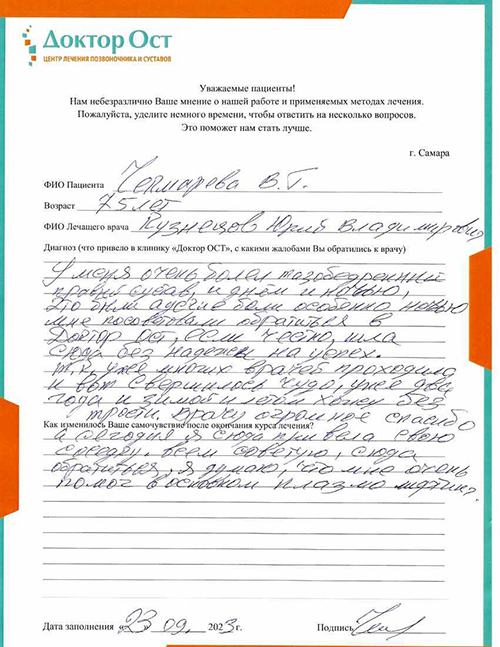 Доктор Ост
ЦЕНТР ЛЕЧЕНИЯ ПОЗВОНОЧНИКА И СУСТАВОВ
Уважаемые пациенты!
Нам небезразлично Ваше мнение о нашей работе и применяемых методах лечения.
Пожалуйста, уделите немного времени, чтобы ответить на несколько вопросов.
Это поможет нам стать лучше.
г. Самара
ФИО Пациента В. Г.
Возраст 75 лет
ФИО Лечащего врача Кузнецов Юрий Владимирович
Диагноз (что привело в клинику «Доктор ОСТ», с какими жалобами Вы обратились к врачу)
У меня очень болел тазобедренный
правый сустав, и днём и ночью,
это были адские боли особенно ночью
мне посоветовали обратиться в
Доктор Ост, если честно, шла
сюда без надежды на успех.
т.к. уже многих врачей проходила
и вот свершилось чудо, уже два
года и зимой и летом хожу без
трости. Врачу огромное спасибо
Как изменилось Ваше самочувствие после окончания курса лечения?
а сегодня я сюда привела свою
соседку. всем советую, сюда
обратиться, я думаю, что мне очень
помог в основном плазмо
Дата заполнения «23» 09. 2023г.
Подпись